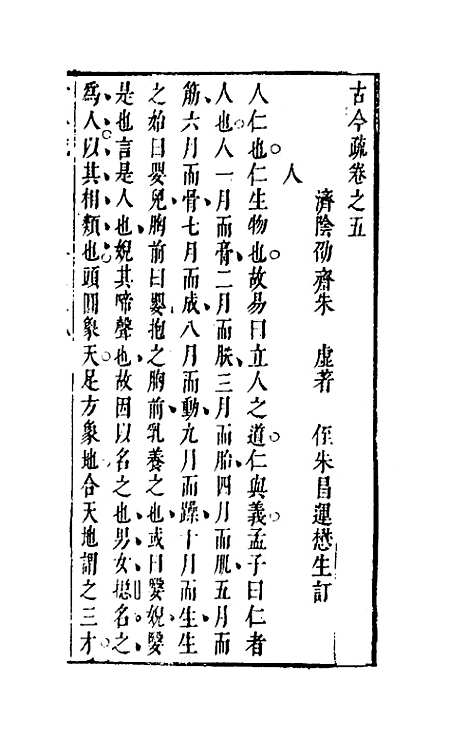 古今疏卷之五
濟陰劭齋朱　虛著　侄朱昌運懋生訂
人
人仁也仁生物也故易曰立人之道仁與義孟子曰仁者
人也人一月而膏二月而胅三月而胎四月而肌五月而
筋六月而骨七月而成八月而動九月而躁十月而生生
之始曰嬰兒胸前曰嬰抱之胸前乳養之也或曰嫛婗嫛
是也言是人也婗其啼聲也故因以名之也男女總名之
爲人以其相類也頭圓象天足方象地合天地謂之三才